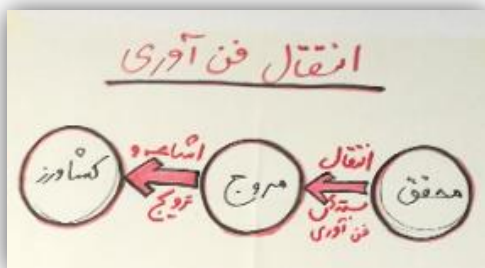 انتقال فن آوری
محقق
انتقال
فن آوری
مروج
اشاعه و
ترویج
کشاورز